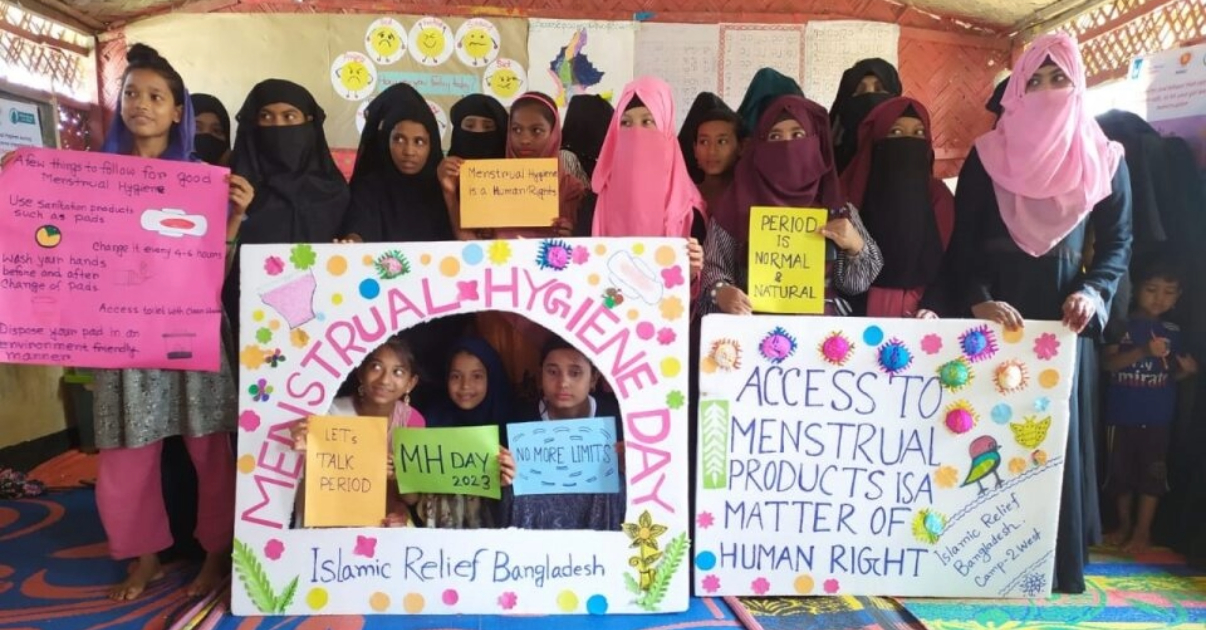 A few things to follow for good
Menstrual Hygiene
Use sanitation products
such as pads
Change it every 4-6 hours
Wash your hands
before and after
Change of pads
Access toilet with Clean
Dispose your pad in an
environment friendly
manner
Menstrual Hygiene
is a Human Rights
PERIOD
IS
NORMAL
&
NATURAL
MENSTRUAL HYGIENE DAY
LET'S
TALK
PERIOD
MH DAY
2023
NO MORE LIMITS
Islamic Relief Bangladesh
ACCESS TO
MENSTRUAL
PRODUCTS IS A
MATTER OF
HUMAN RIGHT
Islamic Relief
Bangladesh.
Camp-2 West
Fly
Emirates